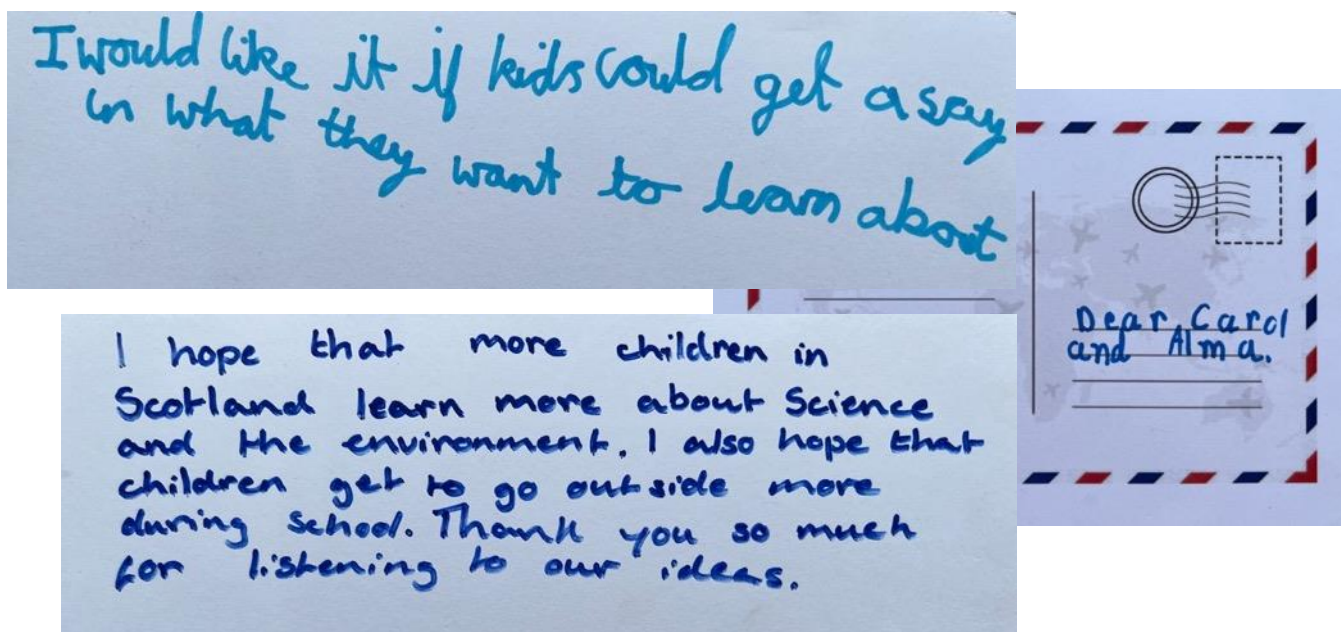 I would like it if kids could get a say
in what they want to learn about
Dear Carol
and Alma.
I hope that more children in
Scotland learn more about Science
and the environment. I also hope that
children get to go outside more
during school. Thank you so much
for listening to our ideas.